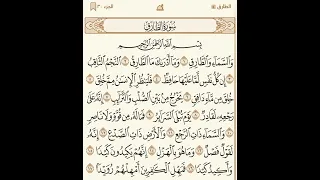 الطارق
الجزء ٣٠
سُورَةُ الطَّارِقِ
بِسْمِ اللَّهِ الرَّحْمَٰنِ الرَّحِيمِ
وَالسَّمَاءِ وَالطَّارِقِ ١ وَمَا أَدْرَاكَ مَا الطَّارِقُ ٢ النَّجْمُ الثَّاقِبُ
٣ إِن كُلُّ نَفْسٍ لَّمَّا عَلَيْهَا حَافِظٌ ٤ فَلْيَنظُرِ الْإِنسَانُ مِمَّ خُلِقَ ٥
خُلِقَ مِن مَّاءٍ دَافِقٍ ٦ يَخْرُجُ مِن بَيْنِ الصُّلْبِ وَالتَّرَائِبِ ٧ إِنَّهُ عَلَىٰ
رَجْعِهِ لَقَادِرٌ ٨ يَوْمَ تُبْلَى السَّرَائِرُ ٩ فَمَا لَهُ مِن قُوَّةٍ وَلَا نَاصِرٍ
١٠ وَالسَّمَاءِ ذَاتِ الرَّجْعِ ١١ وَالْأَرْضِ ذَاتِ الصَّدْعِ ١٢ إِنَّهُ
لَقَوْلٌ فَصْلٌ ١٣ وَمَا هُوَ بِالْهَزْلِ ١٤ إِنَّهُمْ يَكِيدُونَ كَيْدًا ١٥
وَأَكِيدُ كَيْدًا ١٦ فَمَهِّلِ الْكَافِرِينَ أَمْهِلْهُمْ رُوَيْدًا ١٧